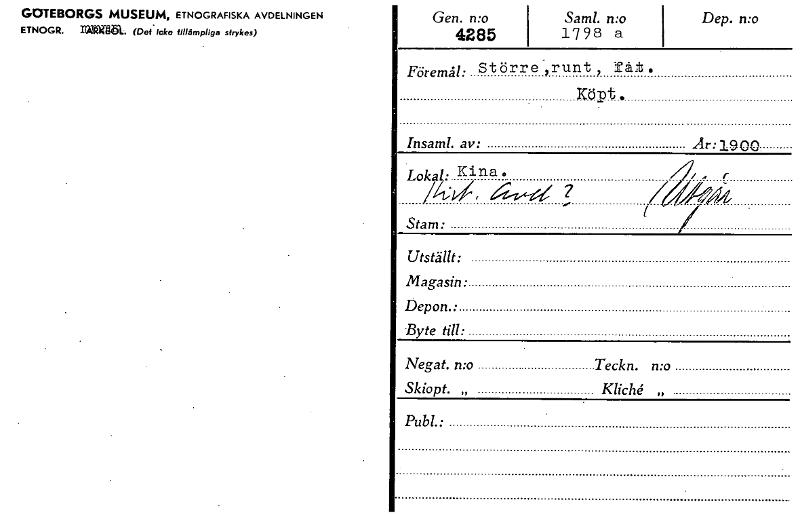 GÖTEBORGS MUSEUM, ETNOGRAFISKA AVDELNINGEN
ETNOGR. (Det icke tillämpliga strykes)
Gen. n:o Saml. n:o Dep. n:o
4285 1798 a
Föremål: Större,runt, fat.
Köpt.
Insaml. av: År: 1900
Lokal: Kina.
Hist. Avd ? Utgår
Stam:
Utställt:
Magasin:
Depon.:
Byte till:
Negat. n:o Teckn. n:o
Skiopt. „ Kliché „
Publ.: